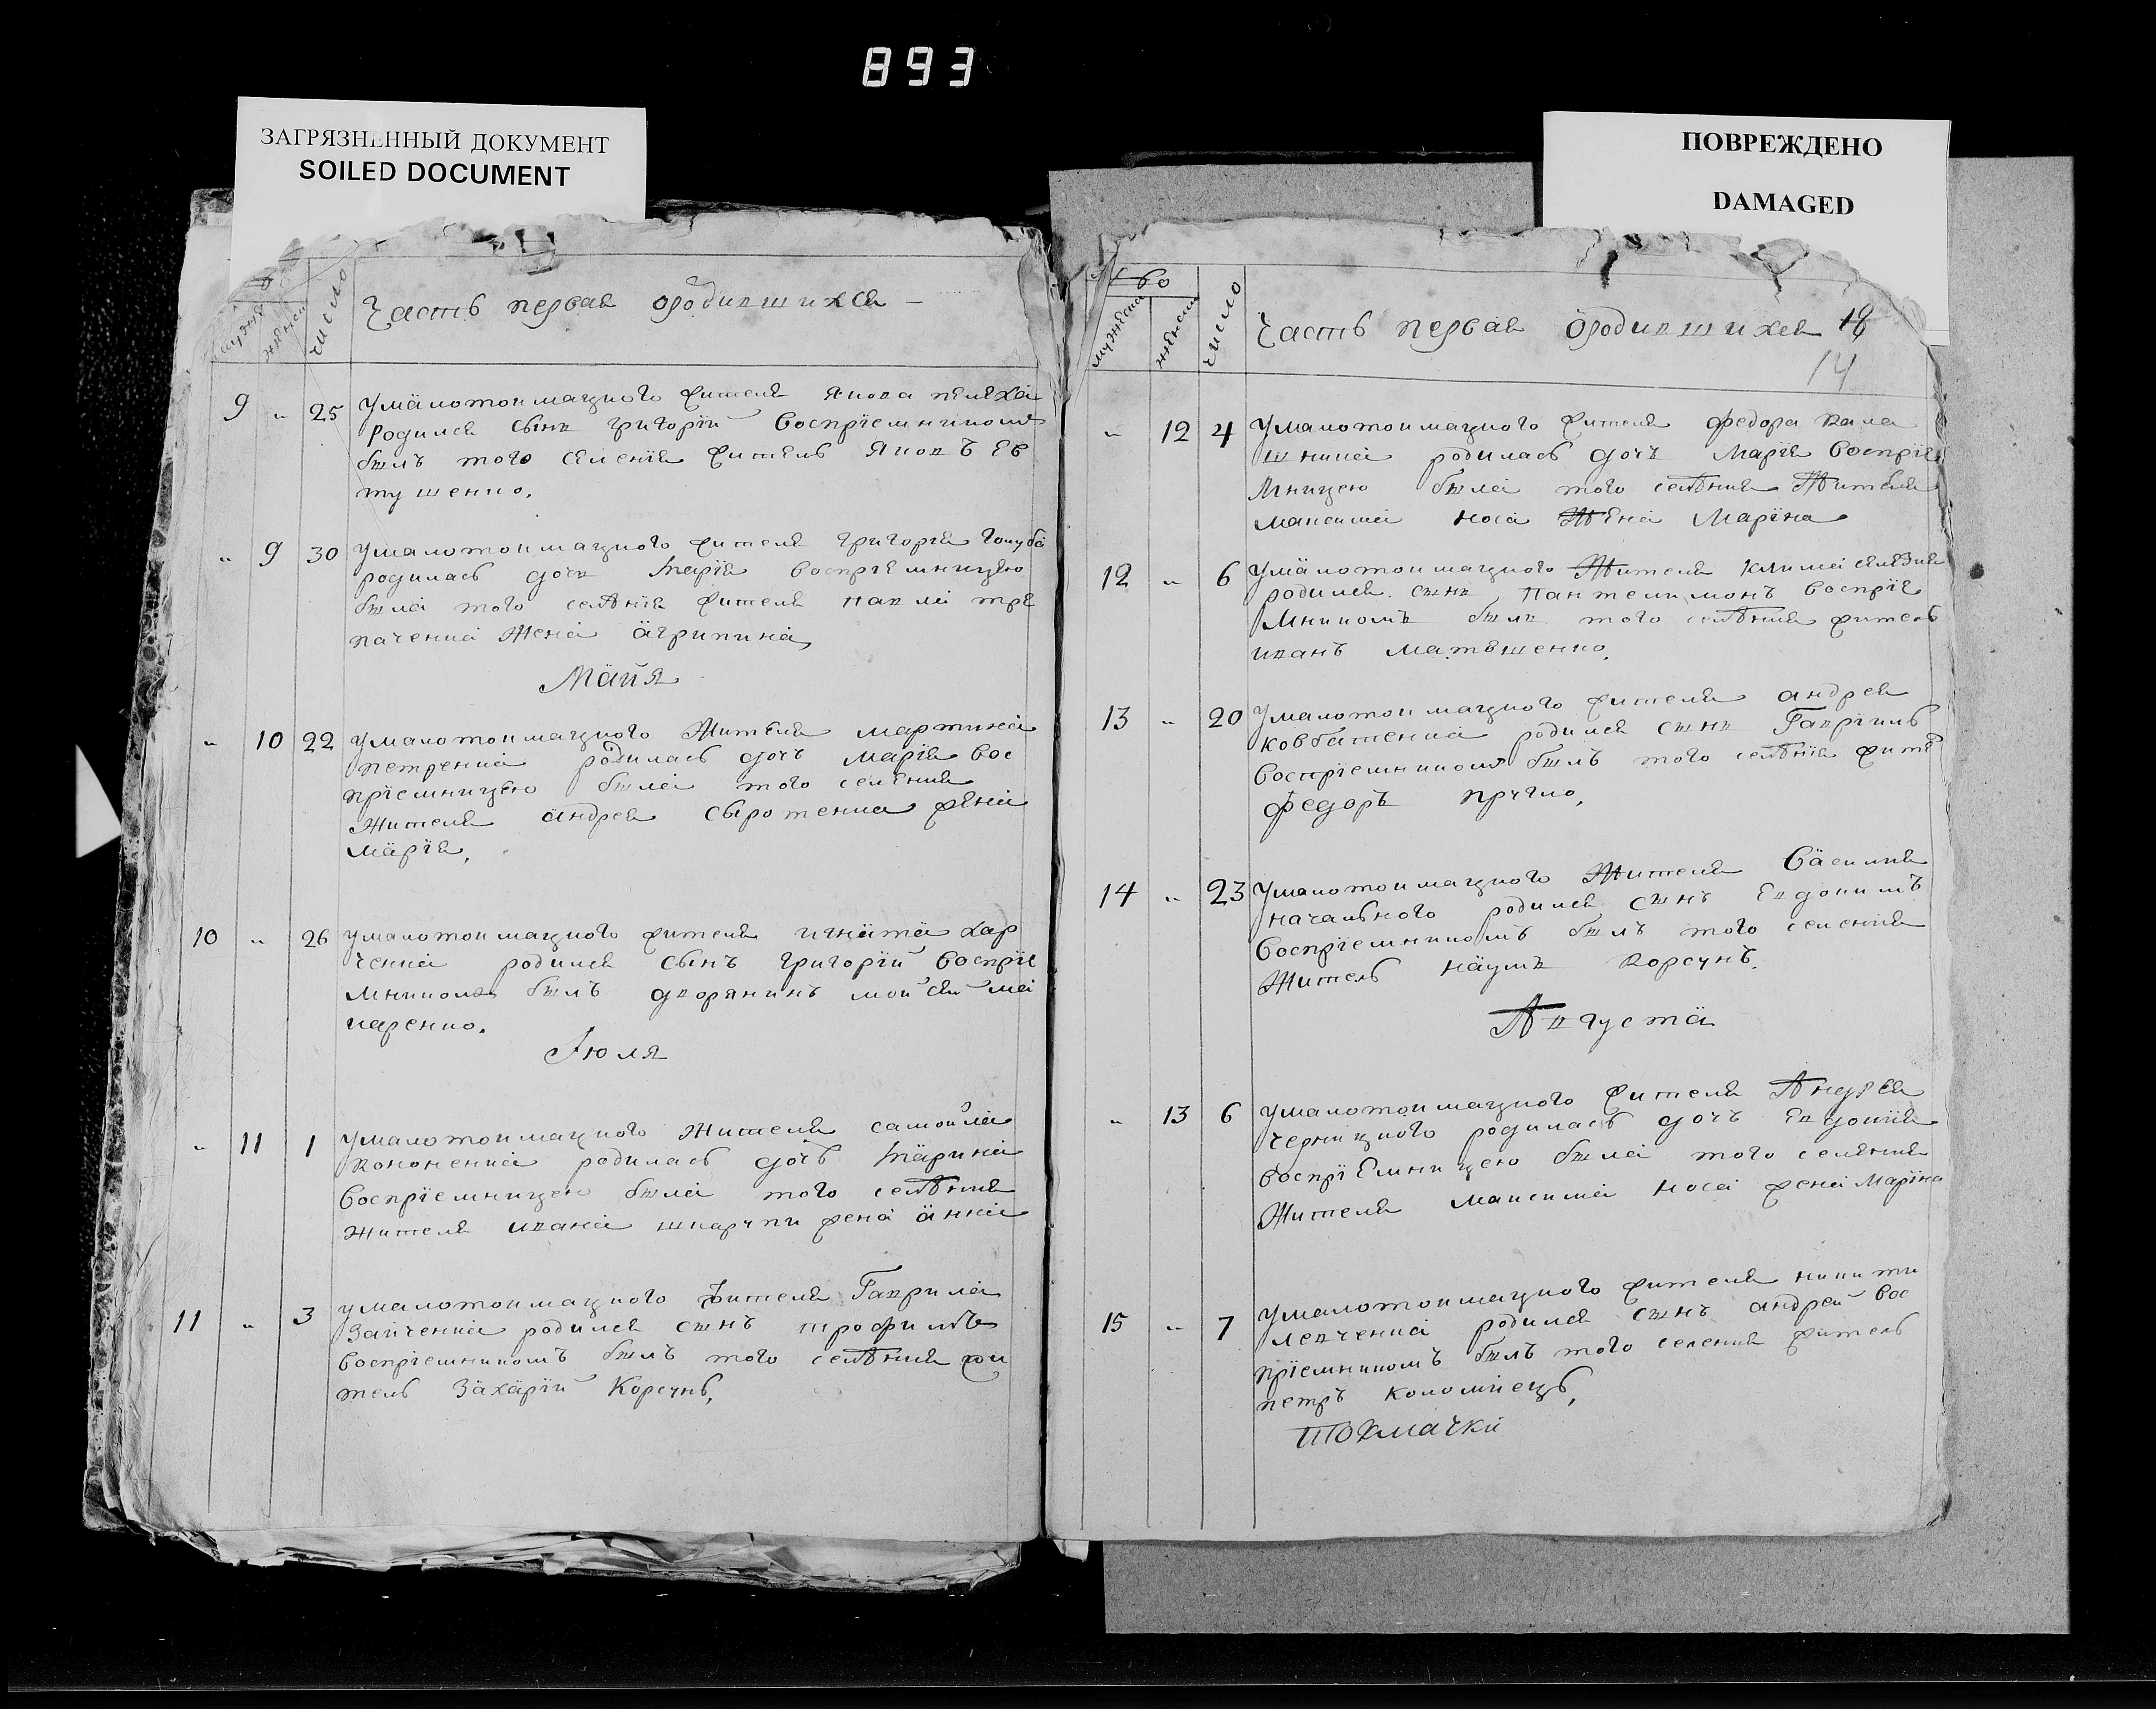 893
ЗАГРЯЗНЕННЫЙ ДОКУМЕНТ
SOILED DOCUMENT
ПОВРЕЖДЕНО
DAMAGED
число
Часть первая ородившихся
9 „ 25 Умалотокмацкого жителя Якова
родился сынъ григорій воспріемникомъ
былъ того селенія житель Яковъ Ев
тушенко.
„ 9 30 Умалотокмацкого жителя григорія голуба
родилась дочь марія воспріемницею
была того селѣнія жителя павла тре
паченка Жена агрипина
Майя
„ 10 22 Умалотокмацкого Жителя мартина
петренка родилась дочь марія вос
пріемницею была того селенія
Жителя андрея сыротенка жена
марія,
10 „ 26 Умалотокмацкого жителя игната хар
ченка родился сынъ григорій воспріе
мникомъ былъ дворянинъ мойсей ма
каренко.
Іюля
„ 11 1 Умалотокмацкого жителя самойла
кононенка родилась дочь марина
воспріемницею была того селѣнія
жителя ивана шкарупи жена анна
11 „ 3 Умалотокмацкого жителя Гаврила
Зайченка родился сынъ трофимъ
воспріемникомъ былъ того селѣнія жи
тель Захарій Корсунъ,
мужеска
женска
число
Часть первая ородившихся 18
14
„ 12 4 Умалотокмацкого жителя федора кала
шника родилась дочь Марія воспріе
мницею была того селѣнія Жителя
максима носа Жена Марина
12 „ 6 Умалотокмацкого Жителя клима
родился сынъ Пантелимонъ воспріе
мникомъ былъ того селѣнія житель
иванъ матюшенко,
13 „ 20 Умалотокмацкого жителя андрея
ковбасенка родился сынъ Гавріилъ
воспріемникомъ былъ того селѣнія жите
федоръ
14 „ 23 Умалотокмацкого Жителя Василия
начального родился сынъ Евдокимъ
воспріемникомъ былъ того селенія
Житель наумъ корсунъ.
Августа
„ 13 6 Умалотокмацкого жителя Андрея
чернецкого родилась дочь Евдокія
воспріемницею была того селенія
Жителя максима носа жена Марина
15 „ 7 Умалотокмацкого жителя никити
левченка родился сынъ андрей вос
пріемникомъ былъ того селенія житель
петръ коломіецъ,
токмачки